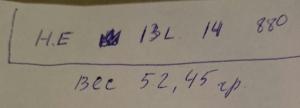 Н.Е 13L 14 880
вес 52,45 гр.